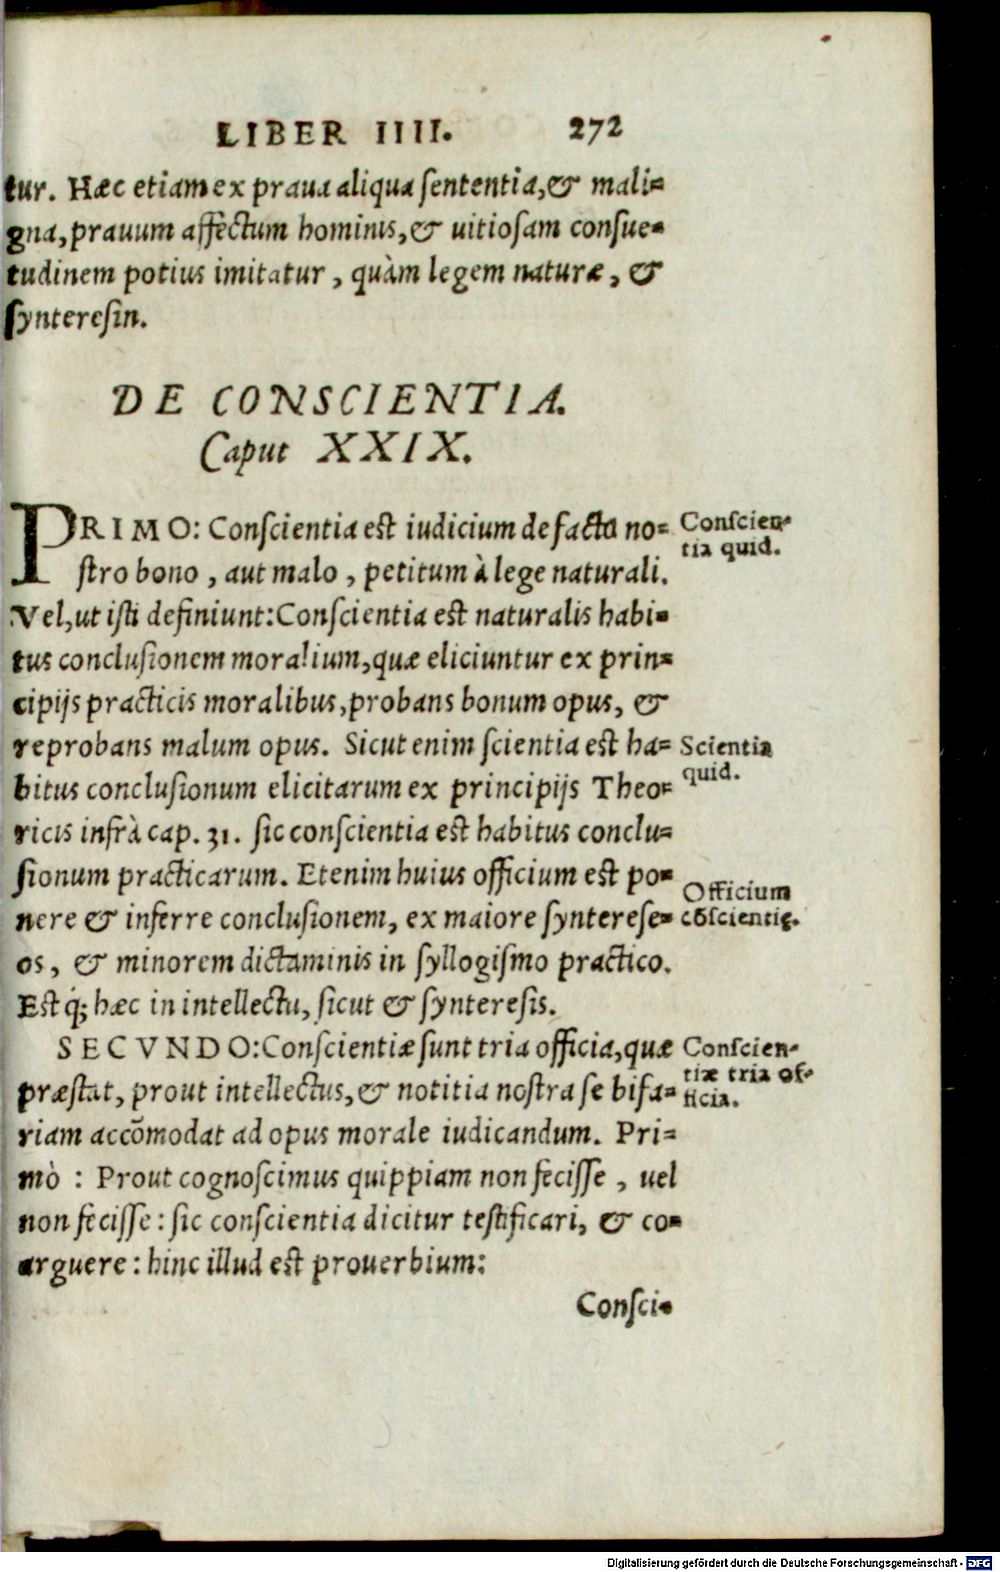 LIBER IIII. 272
tur. Hæc etiam ex praua aliqua sententia, & mali=
gna, prauum affectum hominis, & uitiosam consue=
tudinem potius imitatur, quàm legem naturæ, &
synteresin.
DE CONSCIENTIA.
Caput XXIX.
PRIMO: Conscientia est iudicium de facto no=
stro bono, aut malo, petitum à lege naturali.
Vel, ut isti definiunt: Conscientia est naturalis habi=
tus conclusionem moralium, quæ eliciuntur ex prin=
cipijs practicis moralibus, probans bonum opus, &
reprobans malum opus. Sicut enim scientia est ha=
bitus conclusionum elicitarum ex principijs Theo=
ricis infrà cap. 31. sic conscientia est habitus conclu=
sionum practicarum. Etenim huius officium est po=
nere & inferre conclusionem, ex maiore synterese=
os, & minorem dictaminis in syllogismo practico.
Estq́; hæc in intellectu, sicut & synteresis.
SECVNDO: Conscientiæ sunt tria officia, quæ
præstat, prout intellectus, & notitia nostra se bifa=
riam accõmodat ad opus morale iudicandum. Pri=
mò : Prout cognoscimus quippiam non fecisse, uel
non fecisse: sic conscientia dicitur testificari, & co=
arguere: hinc illud est prouerbium:
Consci=
Conscien=
tia quid.
Scientia
quid.
Officium
cõscientię.
Conscien=
tiæ tria of=
ficia.
Digitalisierung gefördert durch die Deutsche Forschungsgemeinschaft - DFG